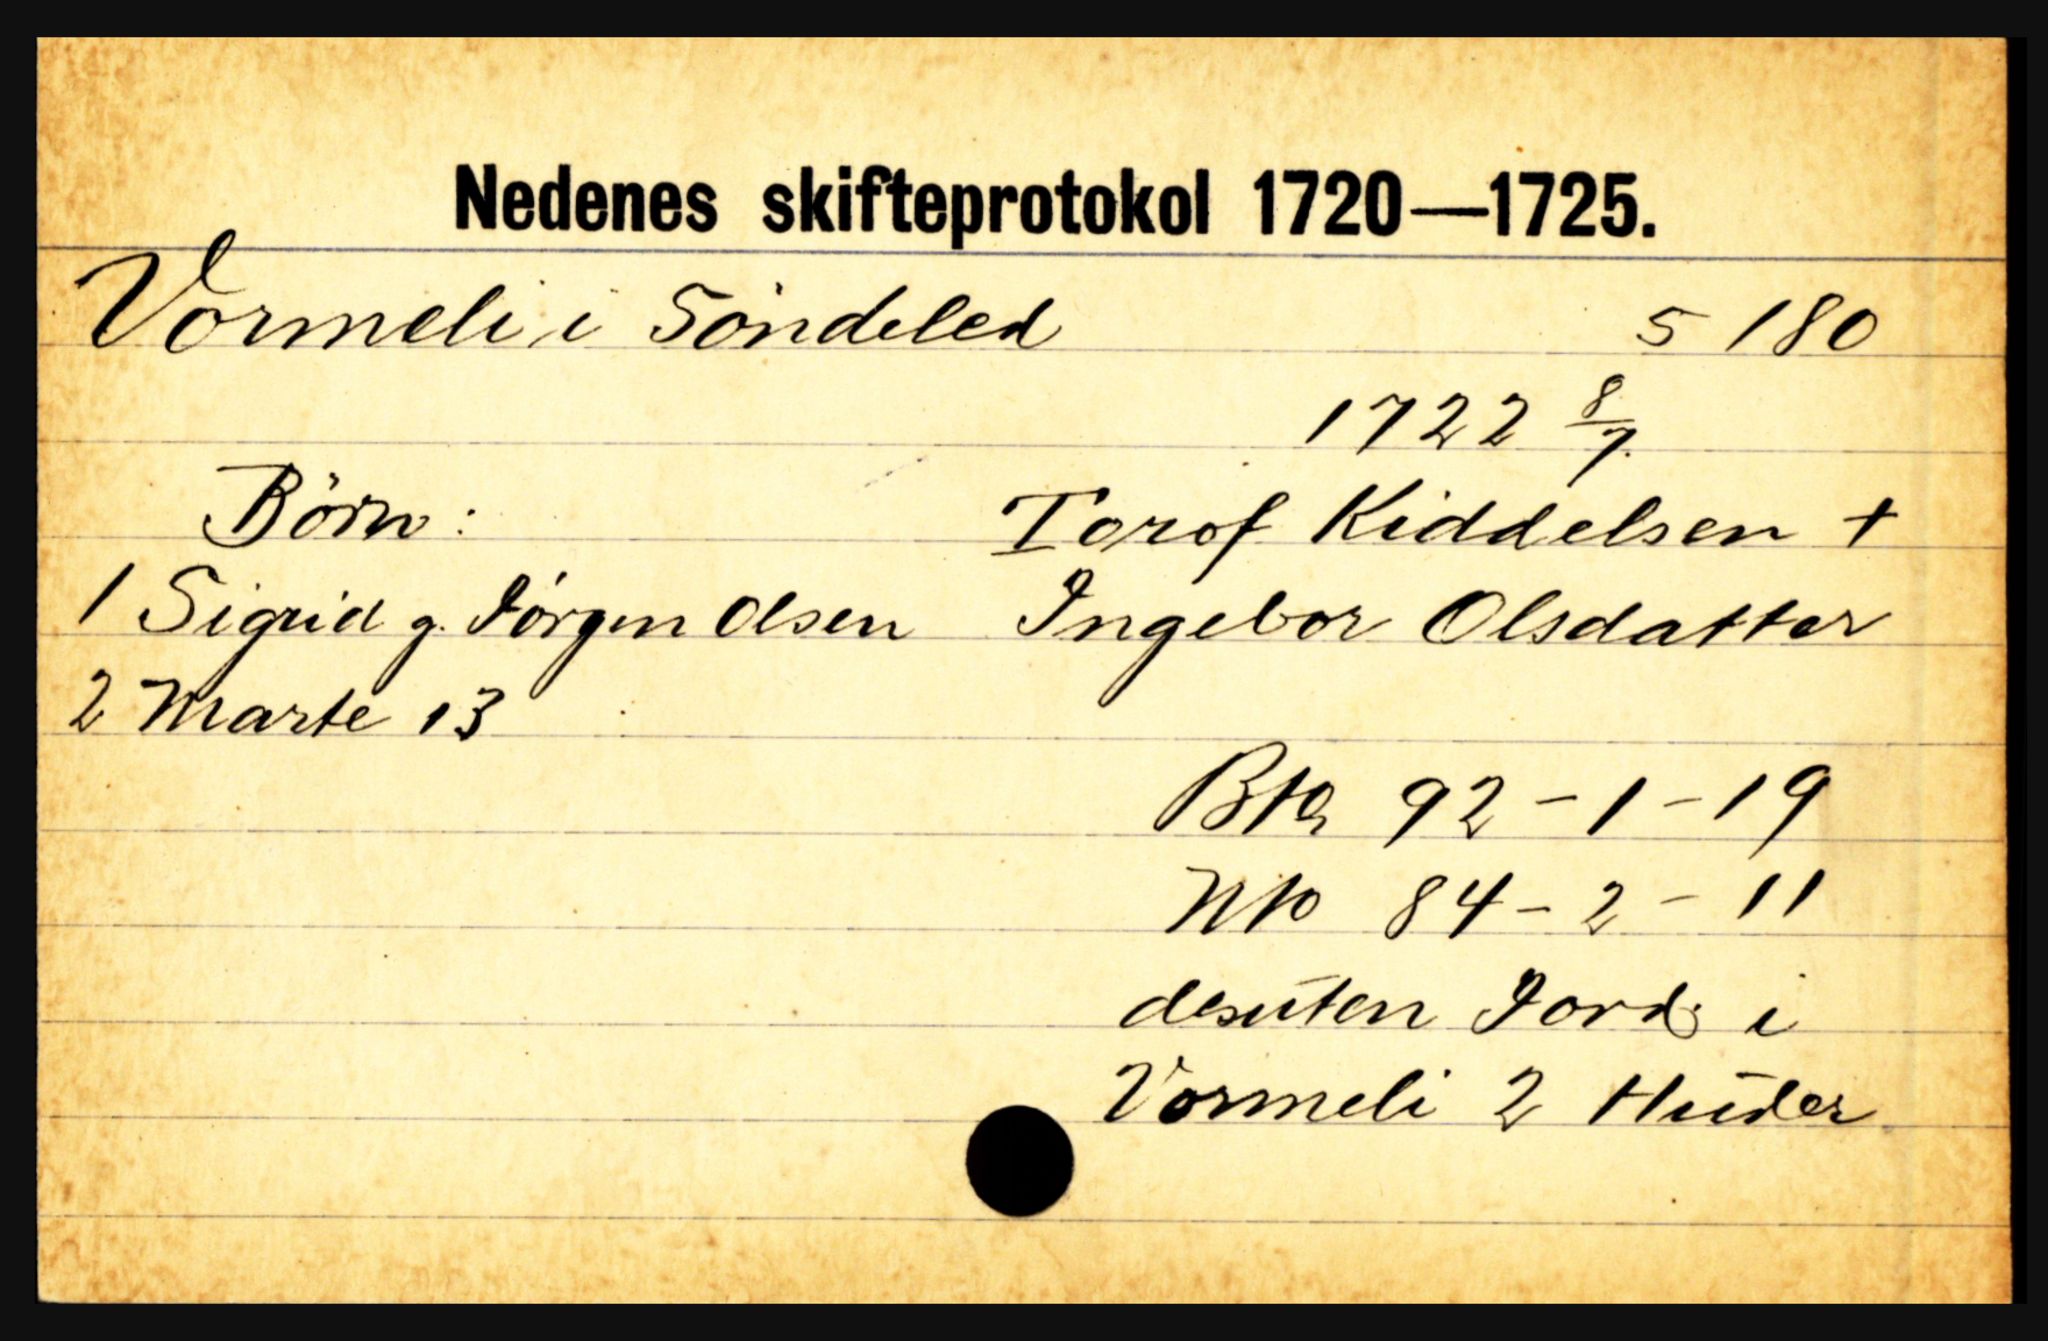 Nedenes skifteprotokol 1720—1725.
Vormeli i Søndeled 5 180
1722 8/7.
Børn: Torof Kiddelsen +
1 Sigrid g. Jørgen Olsen Ingebor Olsdatter
2 Marte 13
Bto 92 - 1 - 19
Nto 84 - 2 - 11
desuten Jord i
Vormeli 2 Huder